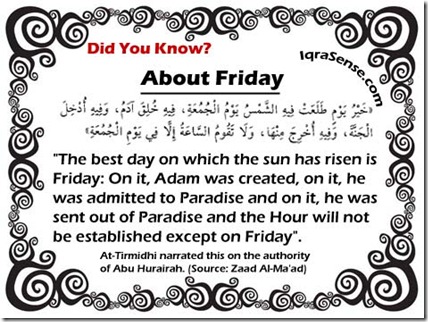 Did You Know?
IqraSense.com
About Friday
«خَيْرُ يَوْمٍ طَلَعَتْ فِيهِ الشَّمْسُ يَوْمُ الْجُمُعَةِ، فِيهِ خُلِقَ آدَمُ، وَفِيهِ أُدْخِلَ
الْجَنَّةَ، وَفِيهِ أُخْرِجَ مِنْهَا، وَلَا تَقُومُ السَّاعَةُ إِلَّا فِي يَوْمِ الْجُمُعَةِ»
"The best day on which the sun has risen is
Friday: On it, Adam was created, on it, he
was admitted to Paradise and on it, he was
sent out of Paradise and the Hour will not
be established except on Friday".
At-Tirmidhi narrated this on the authority
of Abu Hurairah. (Source: Zaad Al-Ma'ad)